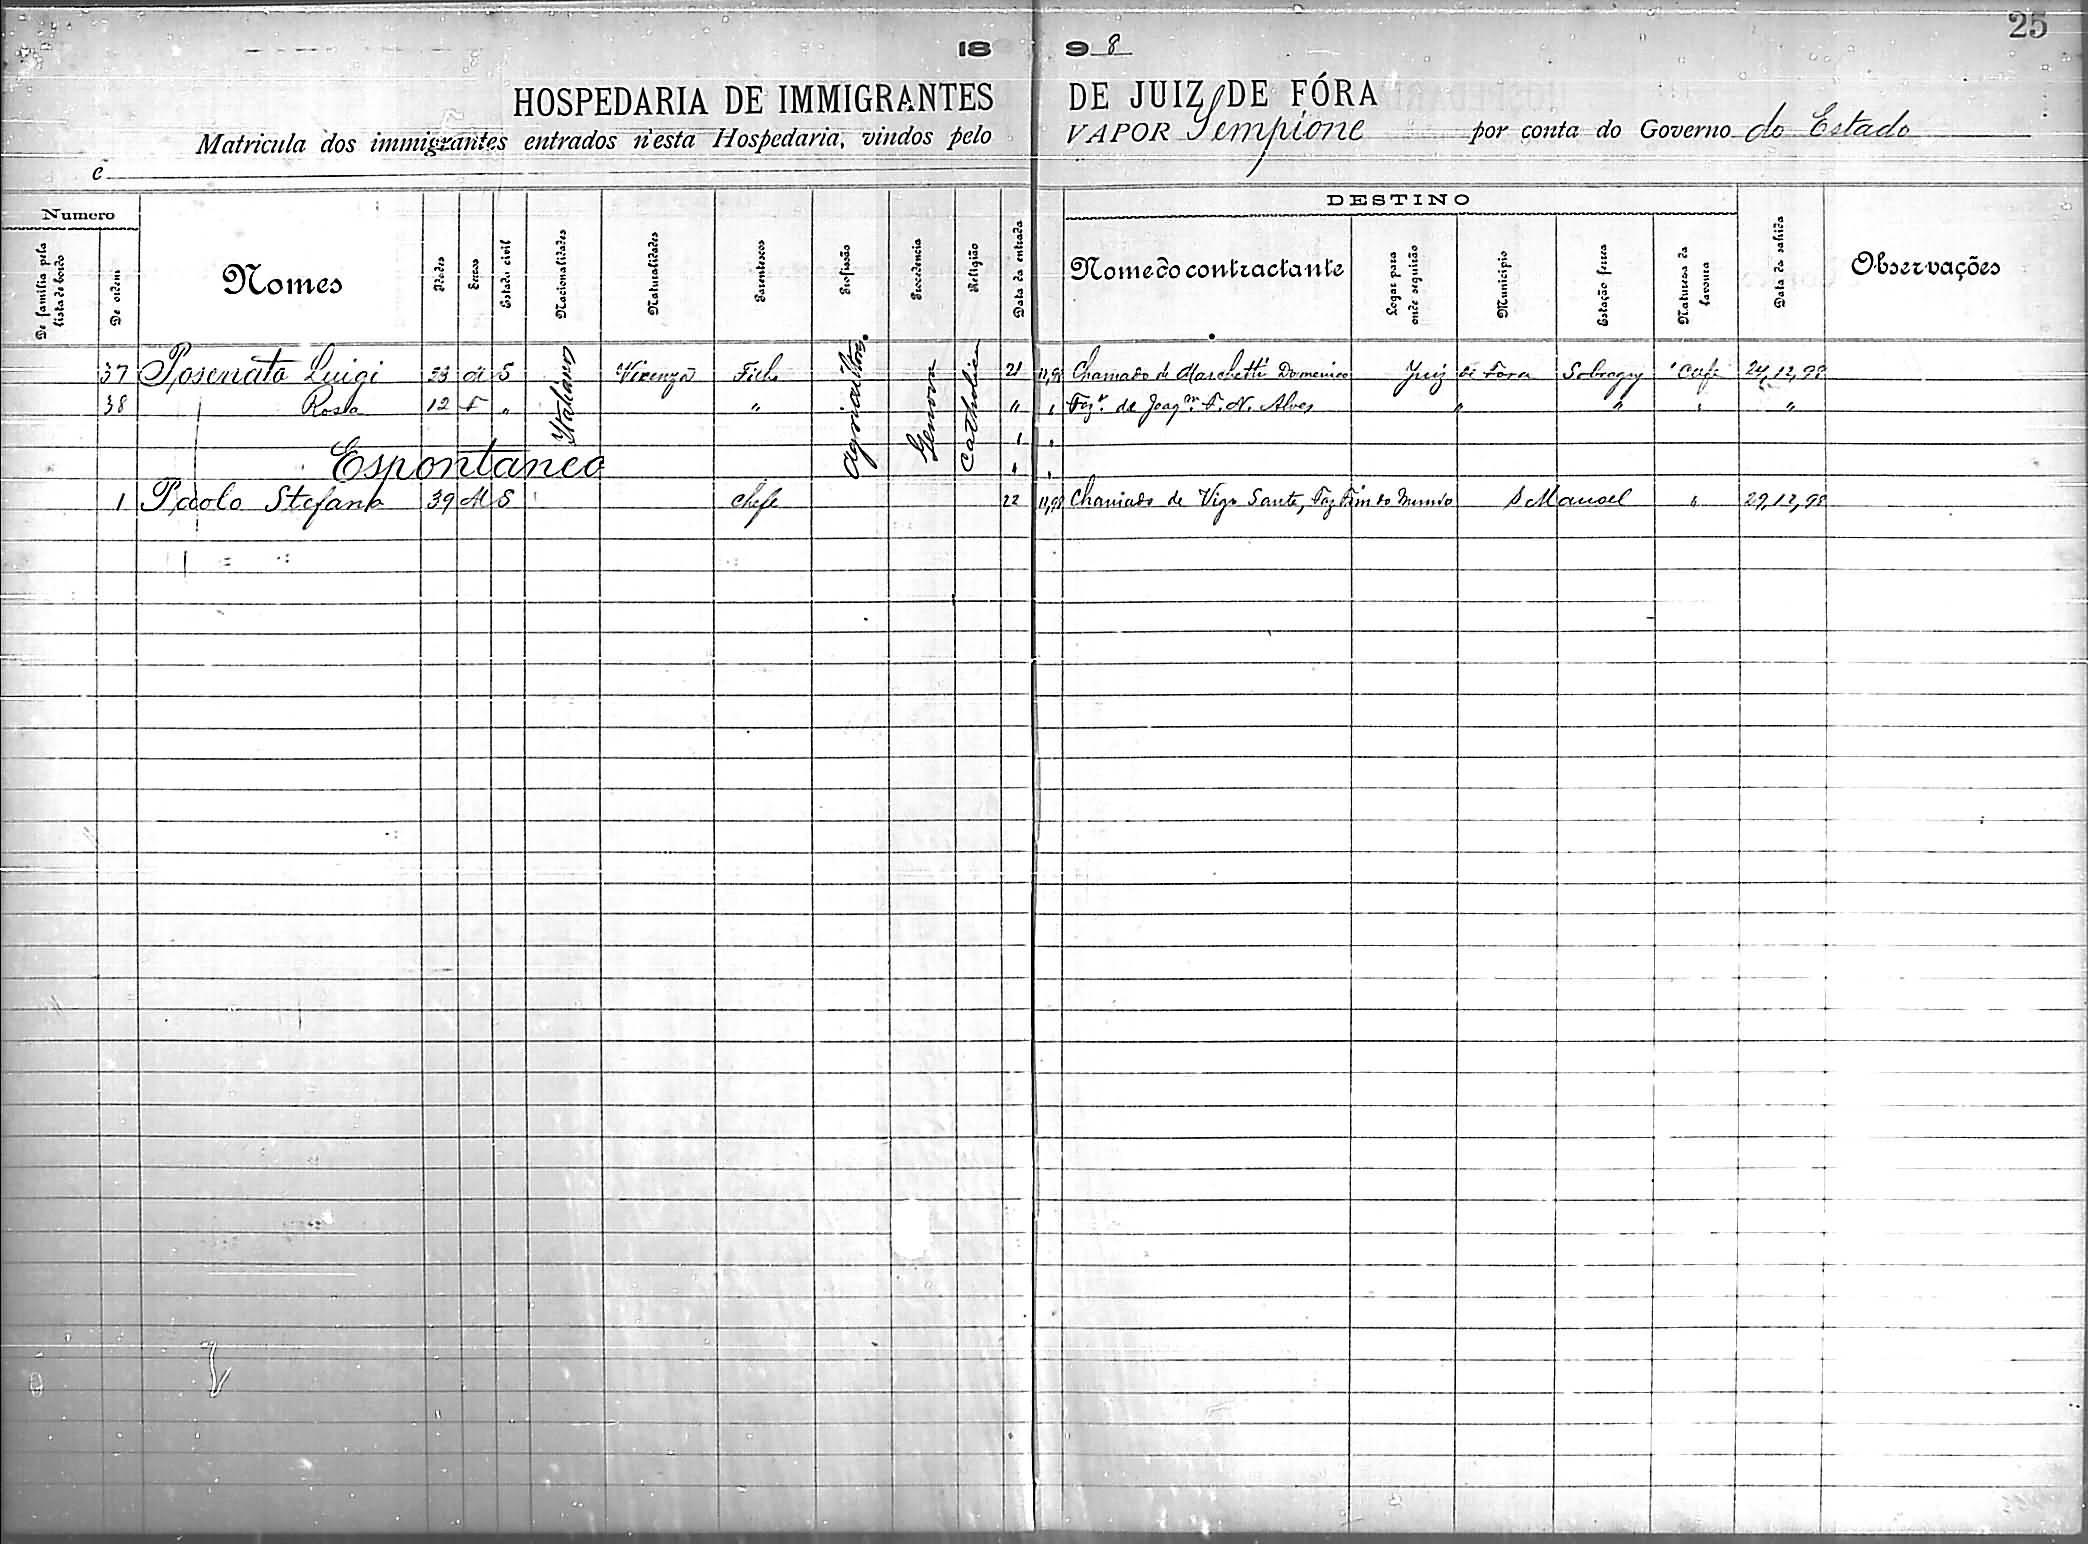 25
189 8
HOSPEDARIA DE IMMIGRANTES DE JUIZ DE FÓRA
Matricula dos immigrantes entrados n'esta Hospedaria, vindos pelo VAPOR Sempione por conta do Governo do Estado
e
Numero
DESTINO
De familia pela lista de bordo De ordem Nomes Idades Sexos Estado civil Nacionalidades Naturalidades Parentescos Profissão Procedencia Religião Data da entrada Nome do contractante Logar para onde seguirão Municipio Estação ferrea Natureza da lavoura Data da sahida Observações
37 Posenato Luigi 23 M S Italiana Vicenza Filho Agricultor Genova Catholica 21 12,98 Chamado de Marchetti Domenico Juiz de Fora Sobragy Café 24,12,98
38 Rosa 12 F " " " " Fazª de Joaqm F. N. Alves " " " "
Espontaneo
1 Paolo Stefano 39 M S Chefe 22 12,98 Chamado de Vigo Sante, Faz Fim do Mundo S Manoel " 29,12,98